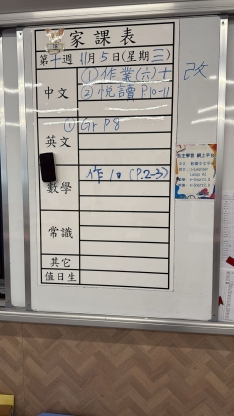 家課表
第十週 11月5日(星期三)
中文 ①作業(六)十 改
②悅讀P10-11
英文 ①Gr P8
數學 作10 (P.2-3)
常識
其它
值日生